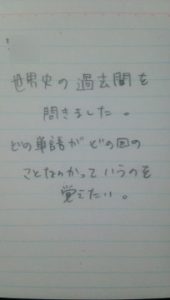 世界史の 過去問を
開きました。
どの単語が どの回の
ことなのかって いうのを
覚えたい。